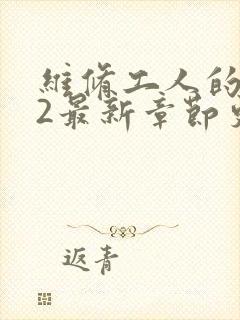 维修工人的
2最新章节
返青